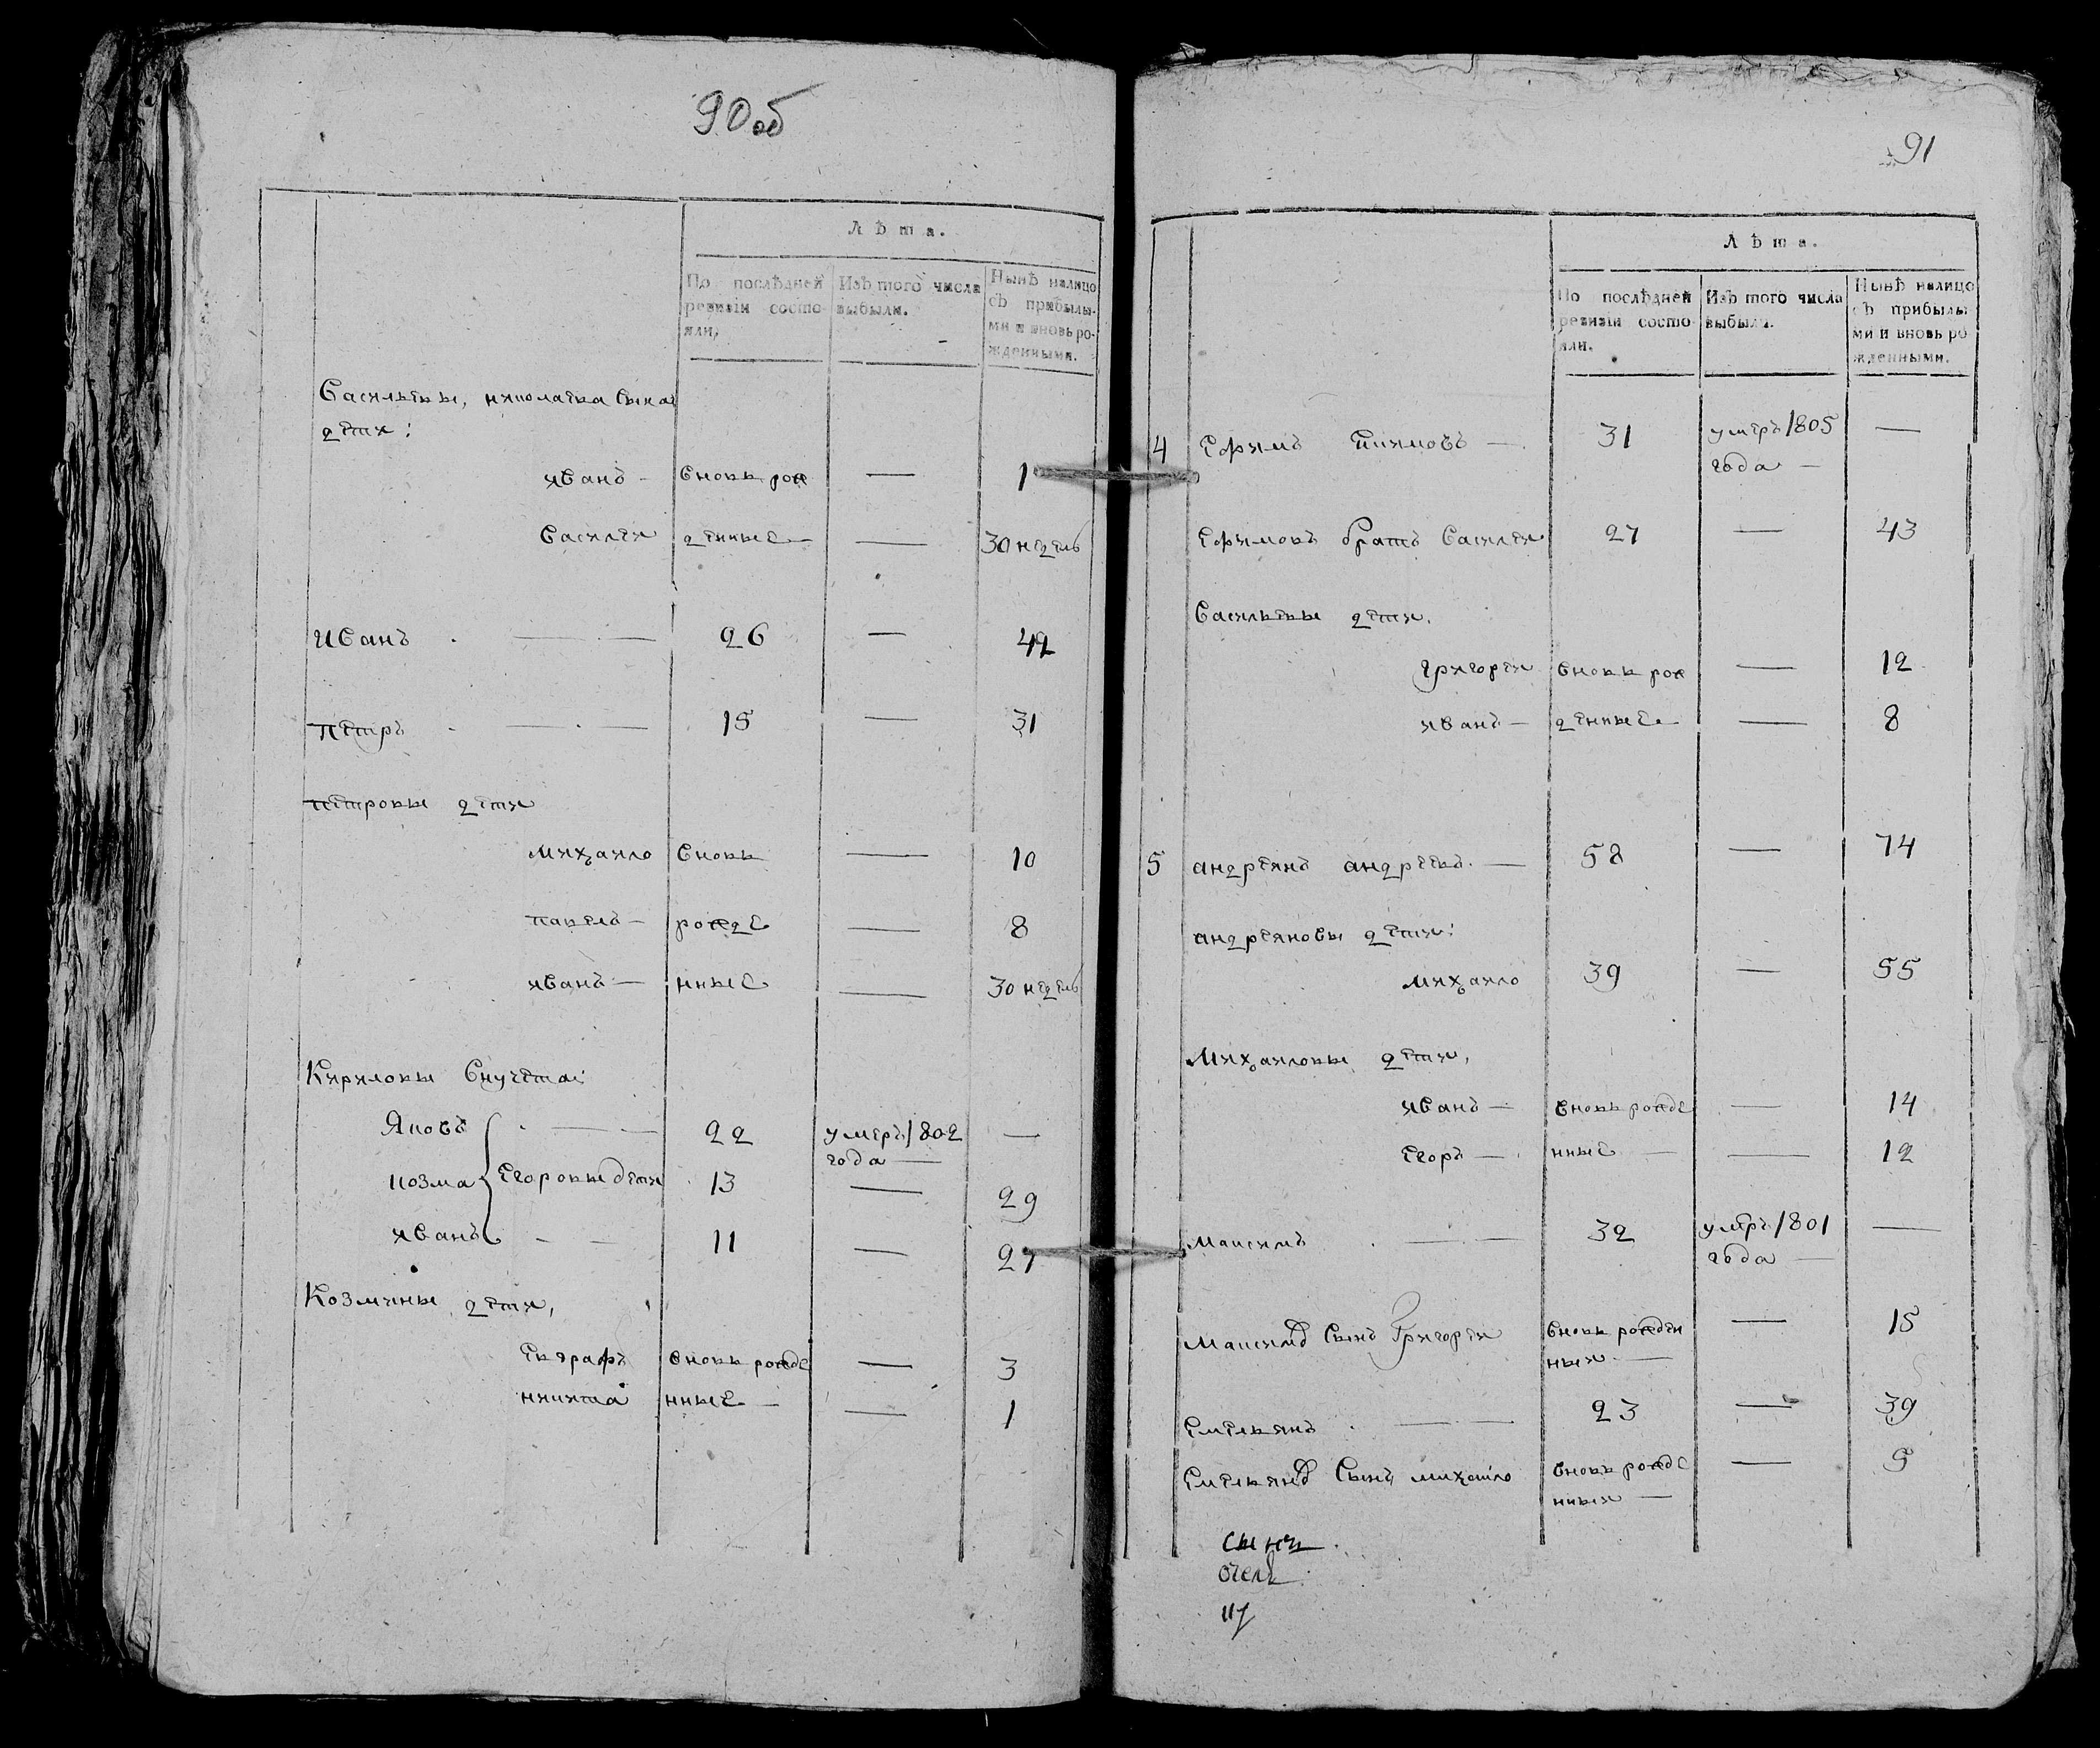 90об
Лѣта.
По послѣдней
ревизіи состо-
яли,
Изъ того числа
выбыли.
Нынѣ налицо
съ прибылы-
ми и вновь ро-
жденными.
Васильевы, николаева сына
дети:
иванъ - вновь рож — 1
Василеи денные — — 30 недель
Иванъ — — 26 — 42
петръ — — 15 — 31
петровы дети
михаило вновь — 10
павелъ — рожде — 8
иванъ — нные — 30 недель
Кириловы внучета:
Яковъ — — 22 умеръ 1802 —
года —
козма Егоровы дети 13 — 29
иванъ — — 11 — 27
Козмины дети,
евграфъ вновь рожде — 3
никита нные — — 1
91
Лѣта.
По послѣдней
ревизіи состо-
яли.
Изъ того числа
выбыли.
Нынѣ налицо
съ прибылы-
ми и вновь ро-
жденными.
4 Ефимъ — 31 умеръ 1805 —
года —
Ефимовъ братъ Василеи 27 — 43
Васильевы дети.
григореи вновь рож — 12
иванъ — денные — — 8
5 андреянъ андреевъ. — 58 — 74
андреяновы дети:
михаило 39 — 55
Михаиловы дети,
иванъ — вновь рожде — 14
егоръ — нные — — 12
максимъ — — 32 умеръ 1801 —
года —
максимовъ сынъ Григореи вновь рожден — 15
ныи —
емельянъ — — 23 — 39
емельяновъ сынъ михаило вновь рожде — 9
нныи —